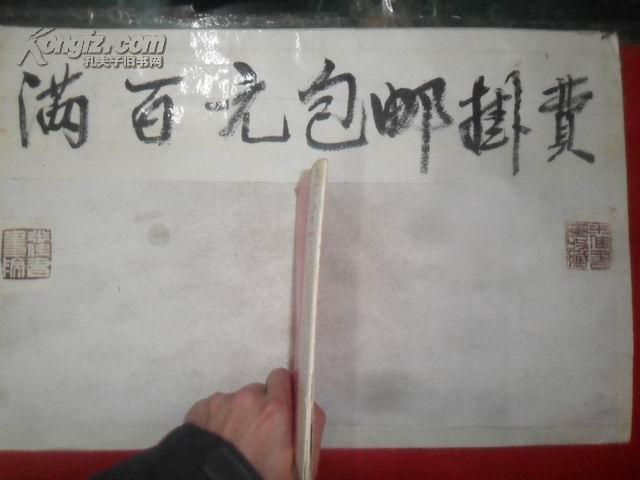 Kongfz.com
孔夫子旧书网
满百元包邮掛費